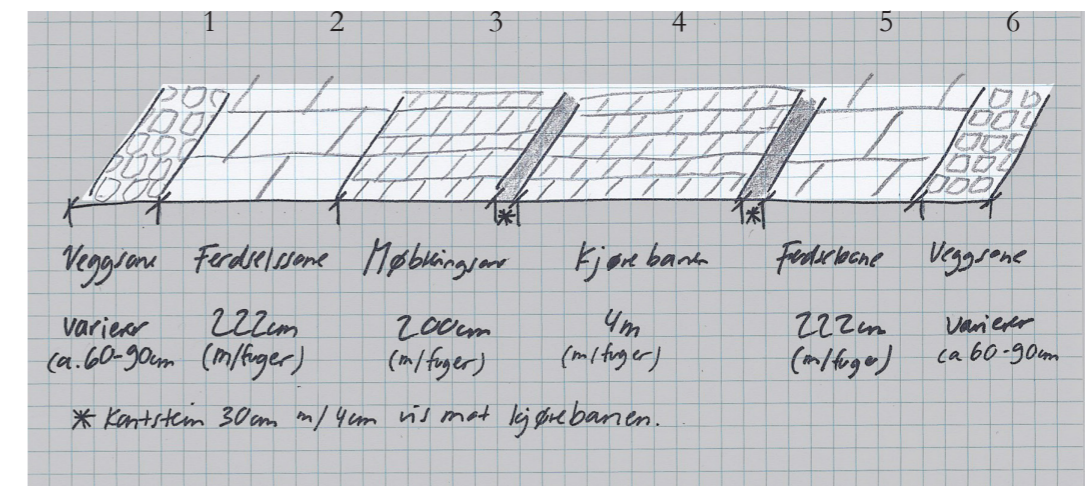 1 2 3 4 5 6
* *
Veggsone Ferdselssone Møbleringssone Kjørebanen Ferdselsone Veggsone
varierer 222cm 200cm 4m 222cm varierer
ca. 60-90cm (m/fuger) (m/fuger) (m/fuger) (m/fuger) ca 60-90cm
* Kantstein 30cm m/ 4cm vis mot kjørebanen.